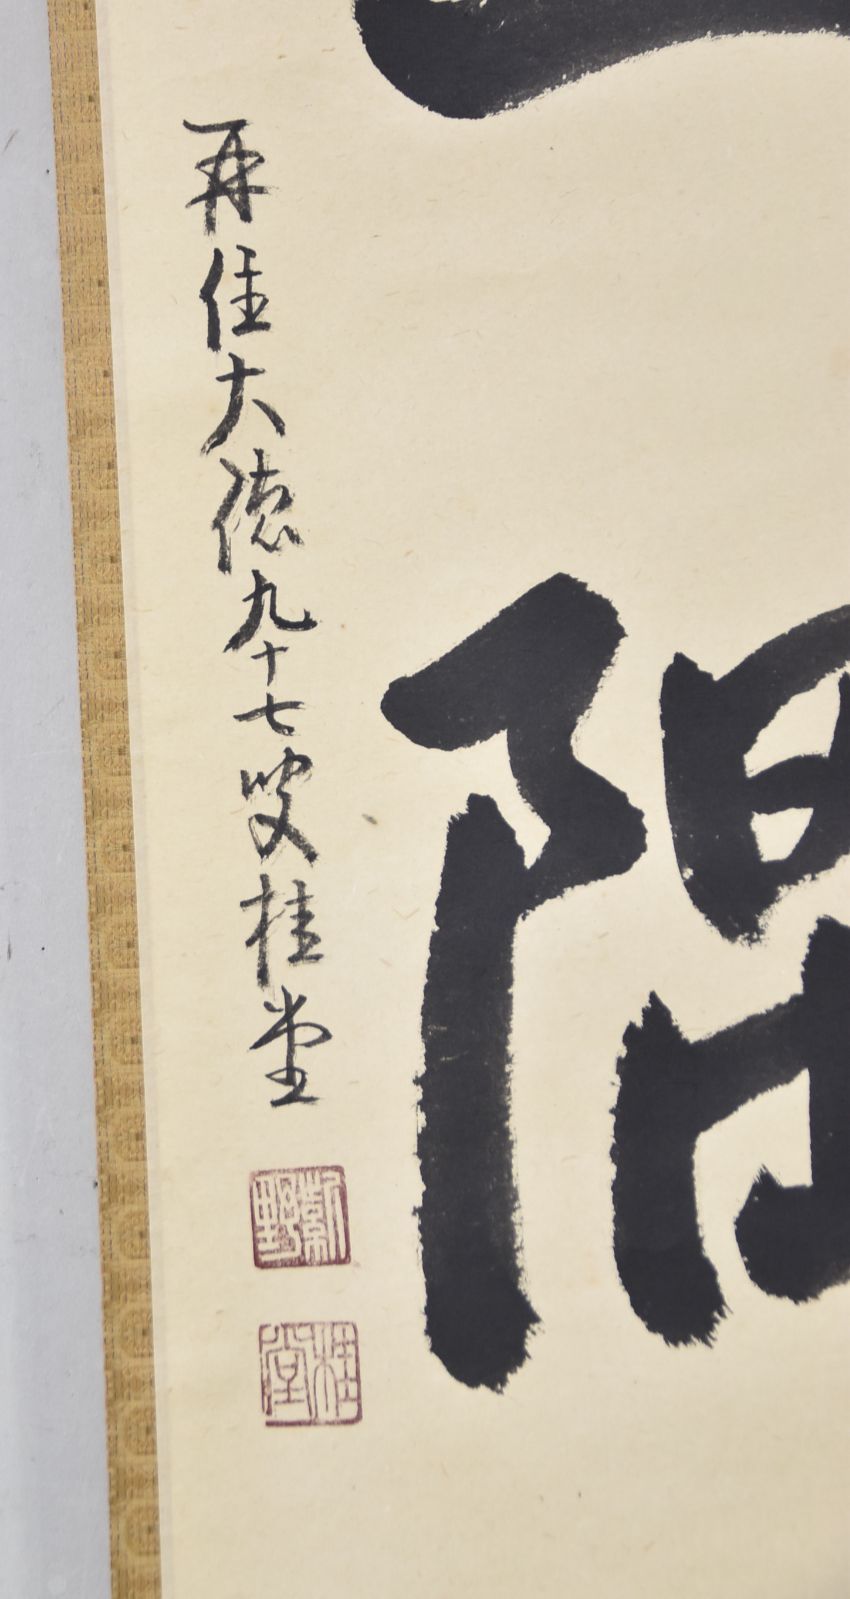 隅
再住大徳九十七叟桂堂
桂堂